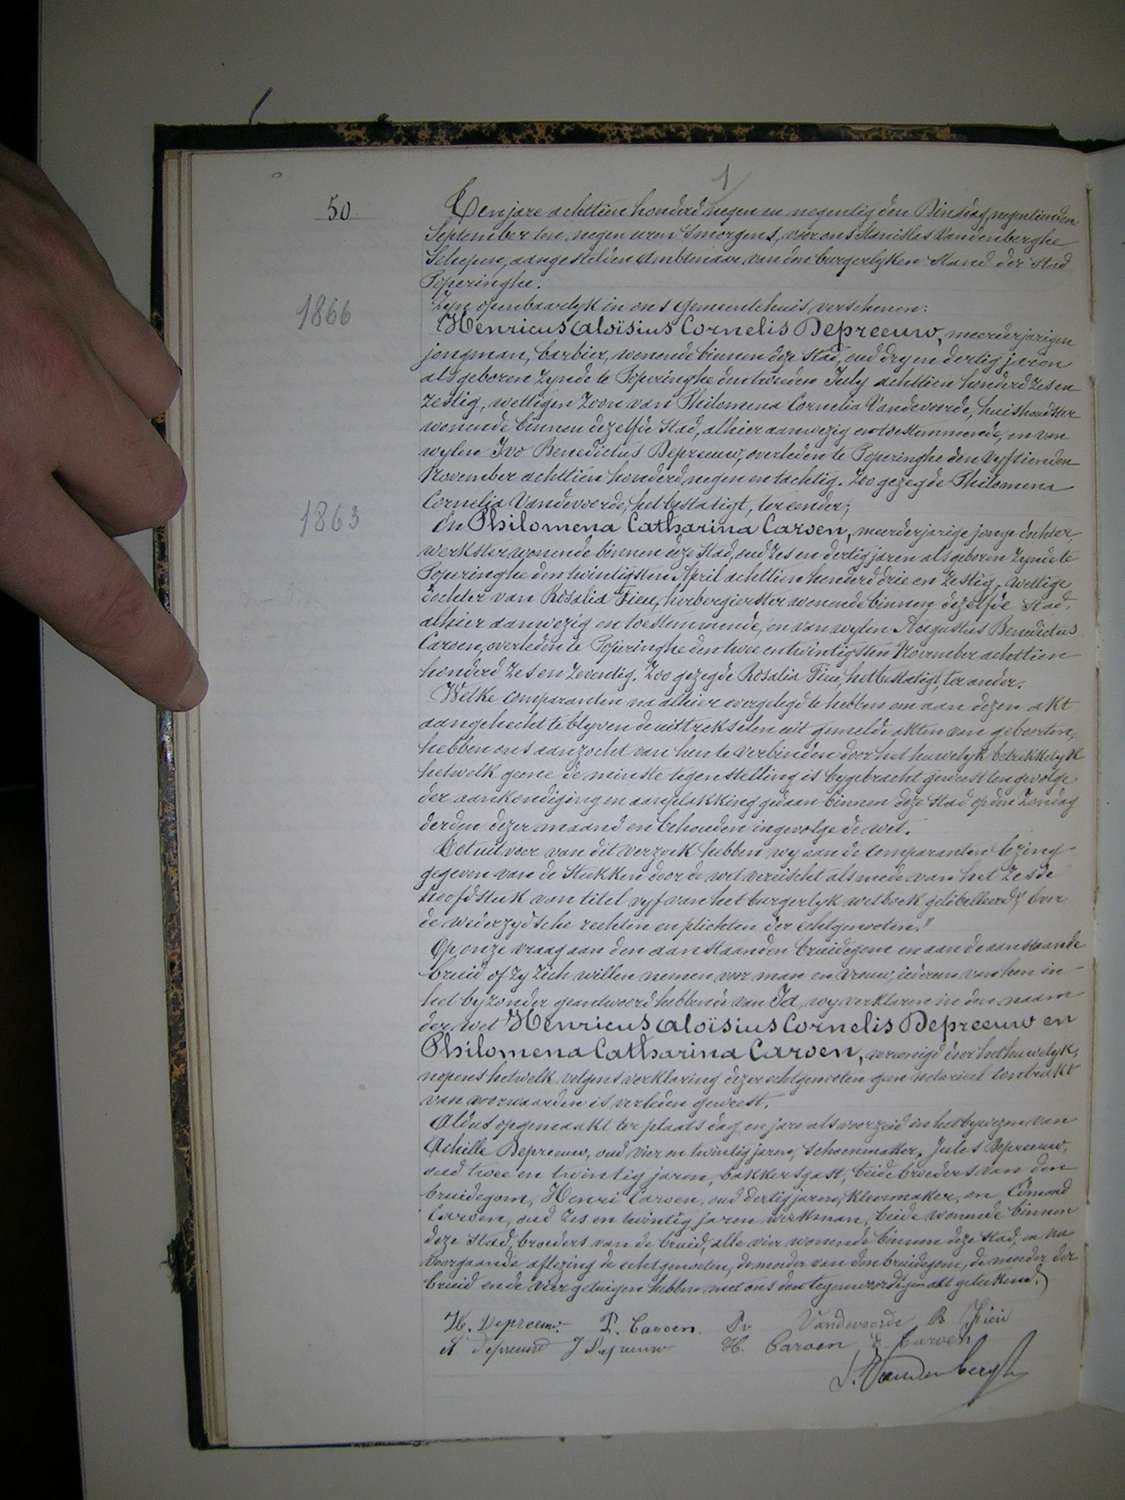 1
50
Ten jare achttien honderd negen en negentig den Dinsdag negentienden
September ten negen uren 's morgens, voor ons Stanislas Vandenberghe
Schepen, aangestelden Ambtenaar van den burgerlyken Stand der Stad
Poperinghe.
Zyn openbaarlyk in ons Gemeentehuis verschenen:
1866
Henricus Aloïsius Cornelis Depreeuw, meerderjarigen
jongman, barbier, wonende binnen deze Stad, oud dry en dertig jaren
als geboren zynde te Poperinghe den tweeden July achttien honderd zes en
zestig, wettigen Zoon van Philomena Cornelia Vandevoorde, huishoudster
wonende binnen dezelfde Stad, alhier aanwezig en toestemmende, en van
wylen Ivo Benedictus Depreeuw, overleden te Poperinghe den vyftienden
November achttien honderd negen en tachtig. Zoo gezegde Philomena
Cornelia Vandevoorde, het bestatigt, ter eender;
1863
En Philomena Catharina Caroen, meerderjarige jonge dochter,
werkster wonende binnen deze Stad, oud zes en dertig jaren als geboren zynde te
Poperinghe den twintigsten April achttien honderd drie en zestig, wettige
Dochter van Rosalia Fieu, herbergierster wonende binnen dezelfde Stad,
alhier aanwezig en toestemmende, en van wylen Augustus Benedictus
Caroen, overleden te Poperinghe den twee en twintigsten November achttien
honderd zes en zeventig. Zoo gezegde Rosalia Fieu, het bestatigt, ter ander.
Welke Comparanten na alhier overgelegd te hebben om aan dezen akt
aangehecht te blyven de uittrekselen uit gemelde akten van geboorten,
hebben ons aanzocht van hen te verbinden door het huwelyk betrekkelyk
hetwelk geene de minste tegenstelling is bygebracht geweest ten gevolge
der aankondiging en aanplakking gedaan binnen deze Stad op den Zondag
derden dezer maand en behouden ingevolge de wet.
Tot uitvoer van dit verzoek hebben wy aan de Comparanten lezing
gegeven van de Stukken door de wet vereischt alsmede van het Zesde
hoofdstuk van titel vyf van het burgerlyk wetboek gelibelleerd "Over
de wederzydsche rechten en plichten der echtgenooten."
Op onze vraag aan den aanstaanden bruidegom en aan de aanstaande
bruid of zy zich willen nemen voor man en vrouw, iedereen van hen in
het byzonder geantwoord hebbende van Ja, wy verklaren in den naam
der wet Henricus Aloïsius Cornelis Depreeuw en
Philomena Catharina Caroen, vereenigd door het huwelyk,
nopens hetwelk volgens verklaring dezer echtgenooten geen notarieel contrakt
van voorwaarden is verleden geweest.
Aldus opgemaakt ter plaats dag en jare als voorzeid in het bywezen van
Achille Depreeuw, oud vier en twintig jaren, schoenmaker, Jules Depreeuw,
oud twee en twintig jaren, bakkersgast, beide broeders van den
bruidegom, Henri Caroen, oud dertig jaren, kleermaker, en Edmond
Caroen, oud zes en twintig jaren werkman, beide wonende binnen
deze Stad, broeders van de bruid, alle vier wonende binnen deze Stad, en na
voorgaande aflezing de echtgenooten, de moeder van den bruidegom, de moeder der
bruid en de vier getuigen hebben met ons den tegenwoordigen akt geteekend.
H. Depreeuw. P. Caroen. Vandevoorde R. Fieu
A Depreeuw J Depreeuw H. Caroen E. Caroen
S. Vandenberghe